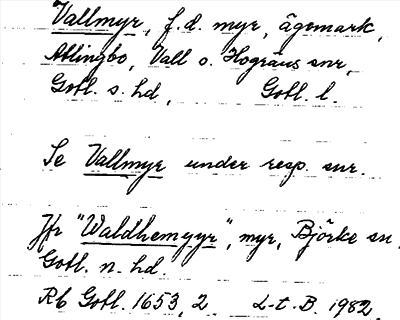 Vallmyr, f.d. myr, ägomark,
Atlingbo, Vall o. Hogräns snr,
Gotl. s. hd, Gotl. l.
Se Vallmyr under resp. snr.
Jfr "Waldhemyyr", myr, Björke sn,
Gotl. n. hd.
Rb Gotl. 1653, 2 L-t. B. 1982